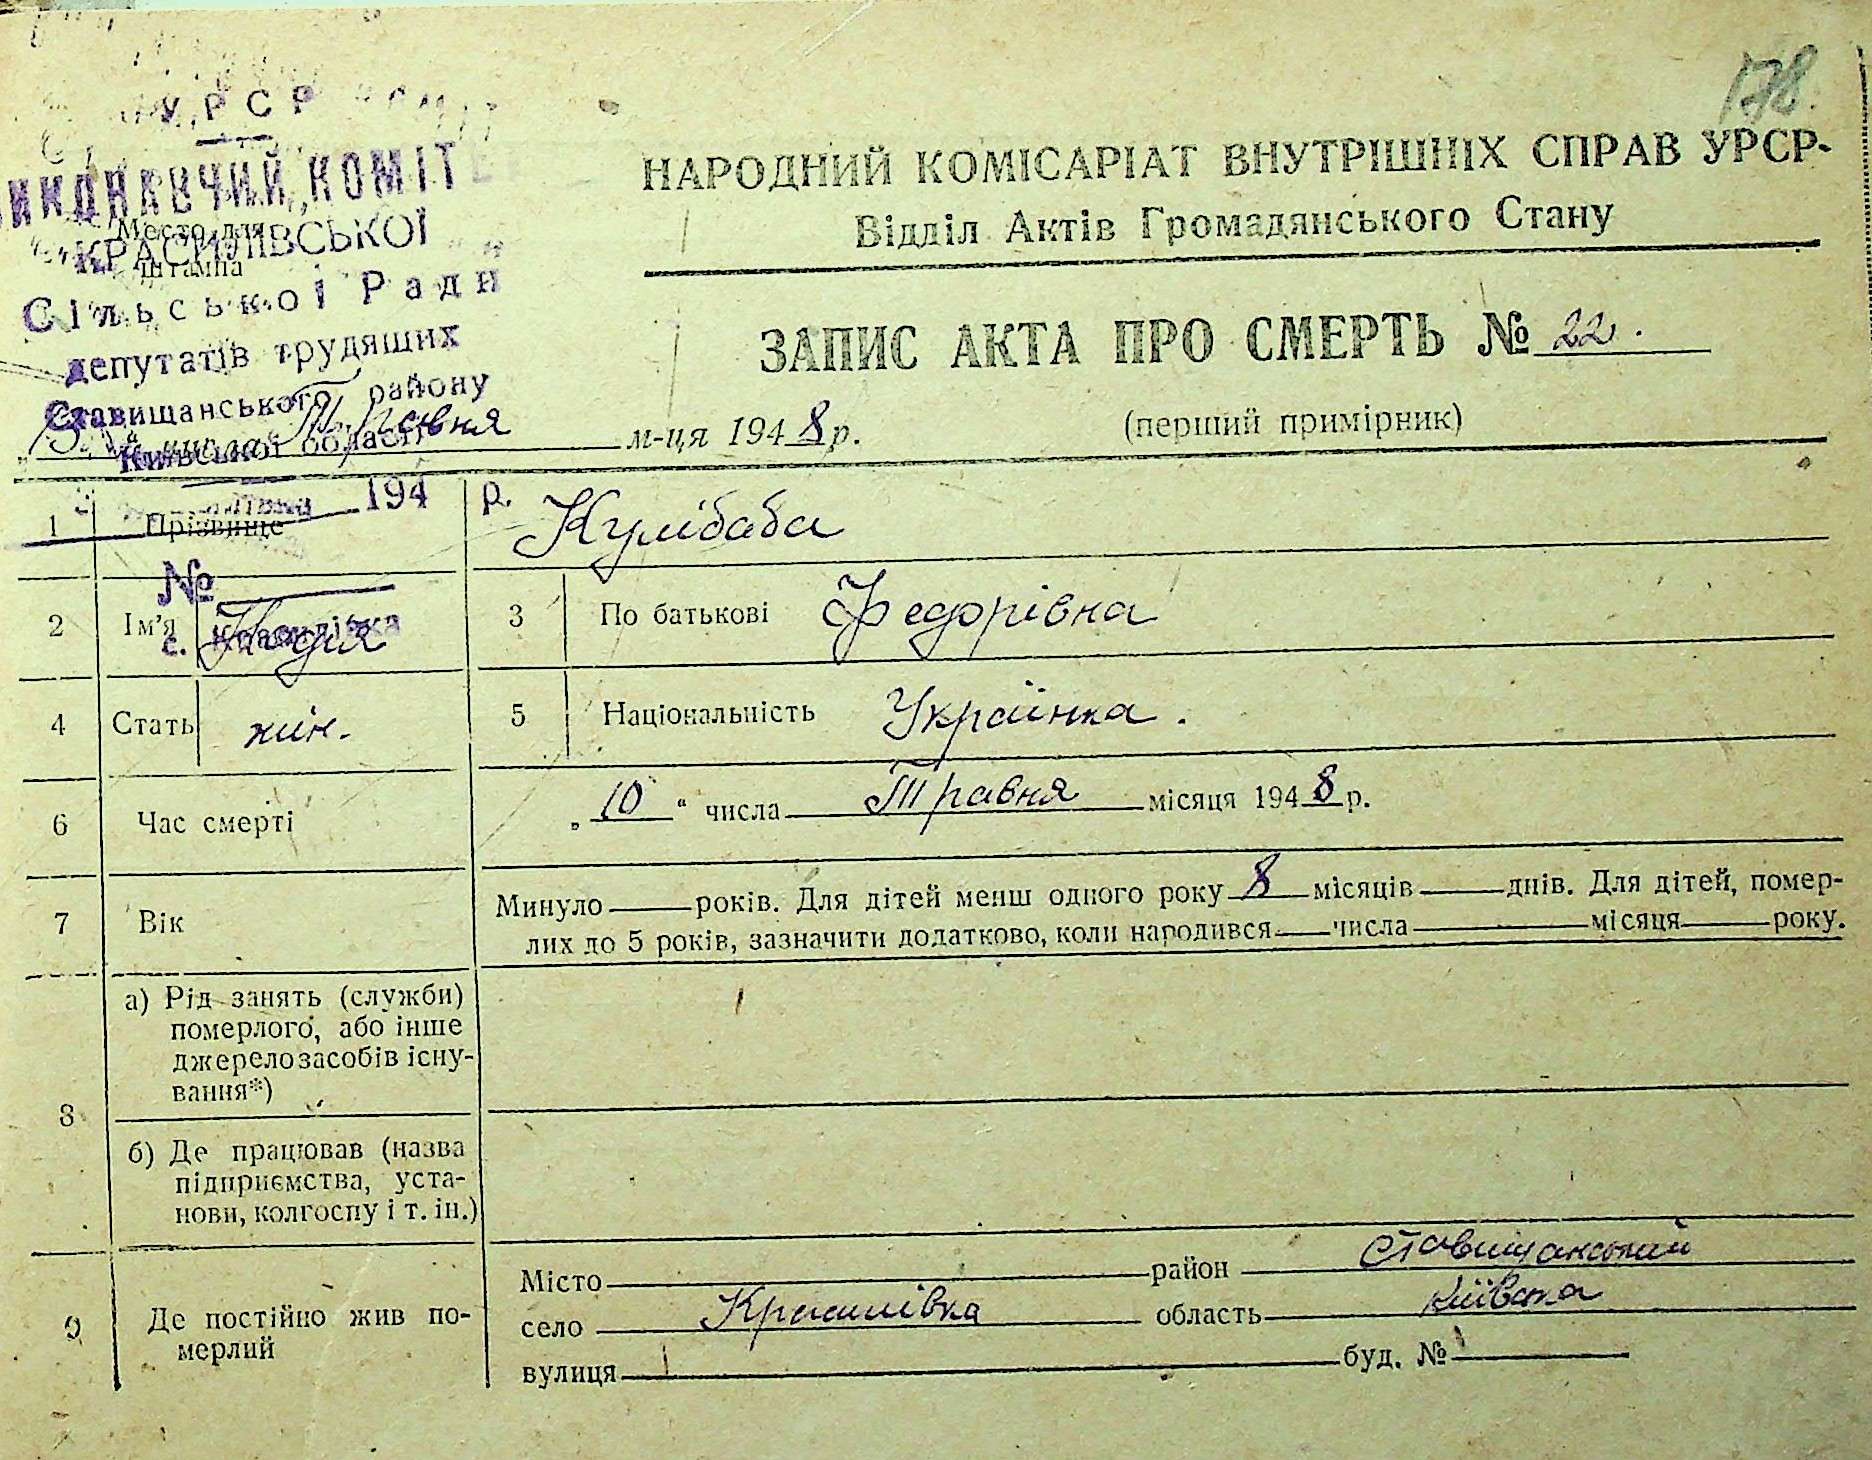 178.
УРСР
ВИКОНАВЧИЙ КОМІТЕ
КРАСИЛІВСЬКОЇ
Сільської Ради
депутатів трудящих
Ставищанського району
Київської області
194 р.
№
с. Красилівка
Место для
штампа
НАРОДНИЙ КОМІСАРІАТ ВНУТРІШНІХ СПРАВ УРСР-
Відділ Актів Громадянського Стану
ЗАПИС АКТА ПРО СМЕРТЬ № 22.
(перший примірник)
числа Травня м-ця 1948 р.
1 Прізвище Кулібаба
2 Ім'я Надія 3 По батькові Федорівна
4 Стать жін. 5 Національність Українка.
6 Час смерті „10“ числа Травня місяця 1948 р.
7 Вік Минуло років. Для дітей менш одного року 8 місяців днів. Для дітей, помер-
лих до 5 років, зазначити додатково, коли народився числа місяця року.
8 а) Рід занять (служби)
померлого, або інше
джерело засобів існу-
вання*)
б) Де працював (назва
підприємства, уста-
нови, колгоспу і т. ін.)
9 Де постійно жив по-
мерлий
Місто район Ставищанський
село Красилівка область Київська
вулиця буд. №